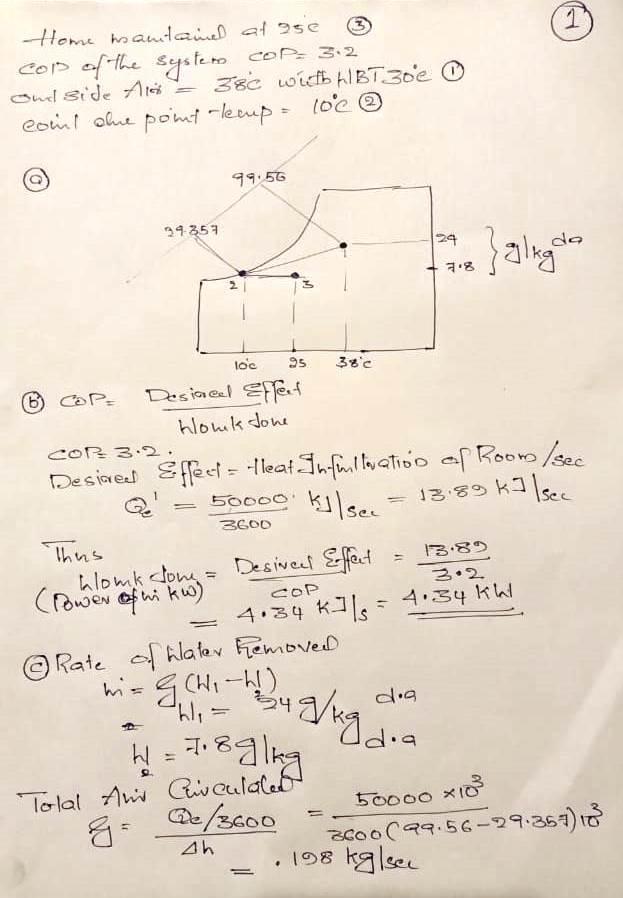 1
Home maintained at 25c ③
COP of the system COP= 3.2
outside Air = 38c with WBT 30c ①
point temp = 10°c ②
ⓐ
99.56
29.357
24
7.8
} g/kg da
2
3
1
10c 25 38c
ⓑ COP= Desired Effect
Work done
COP= 3.2.
Desired Effect = Heat Infiltration of Room/sec
Qe' = 50000 KJ/sec = 13.89 KJ/sec
3600
Thus
Work done = Desired Effect = 13.89
(Power in kw) COP 3.2
= 4.34 KJ/s = 4.34 KW
ⓒ Rate of Water Removed
m = g (W1 - W2)
W1 = 24 g/kg d.a
W2 = 7.8 g/kg d.a
Total Air Circulated
g = Qe/3600 = 50000 x10³
Δh 3600(99.56-29.357)10³
= .198 kg/sec